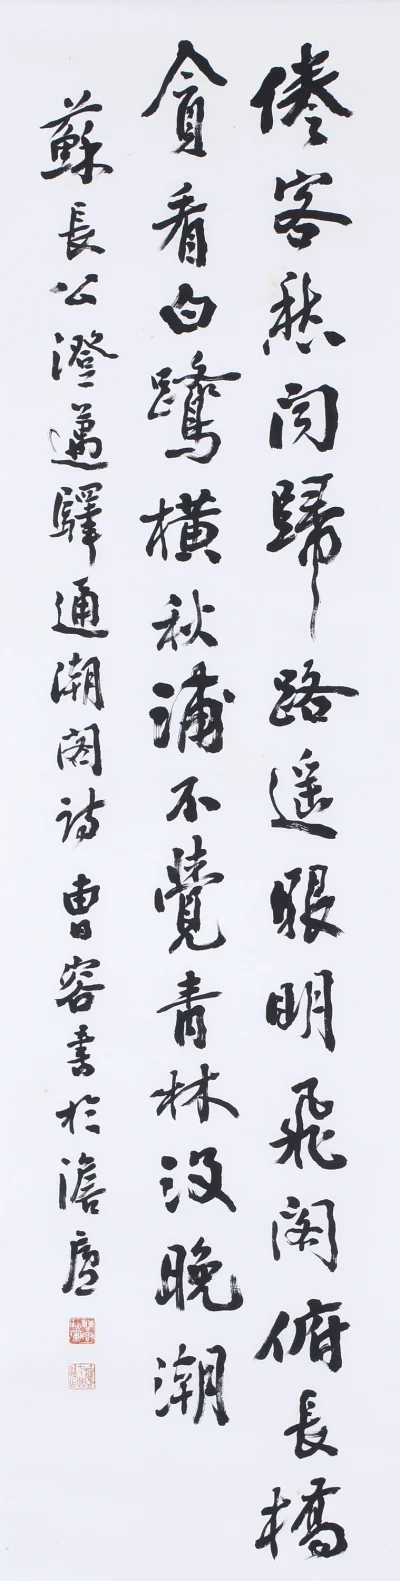 倦客愁聞歸路遥眼明飛閣俯長橋
貪看白鷺橫秋浦不覺青林没晚潮
蘇長公澄邁驛通潮閣詩曹容書於澹廬